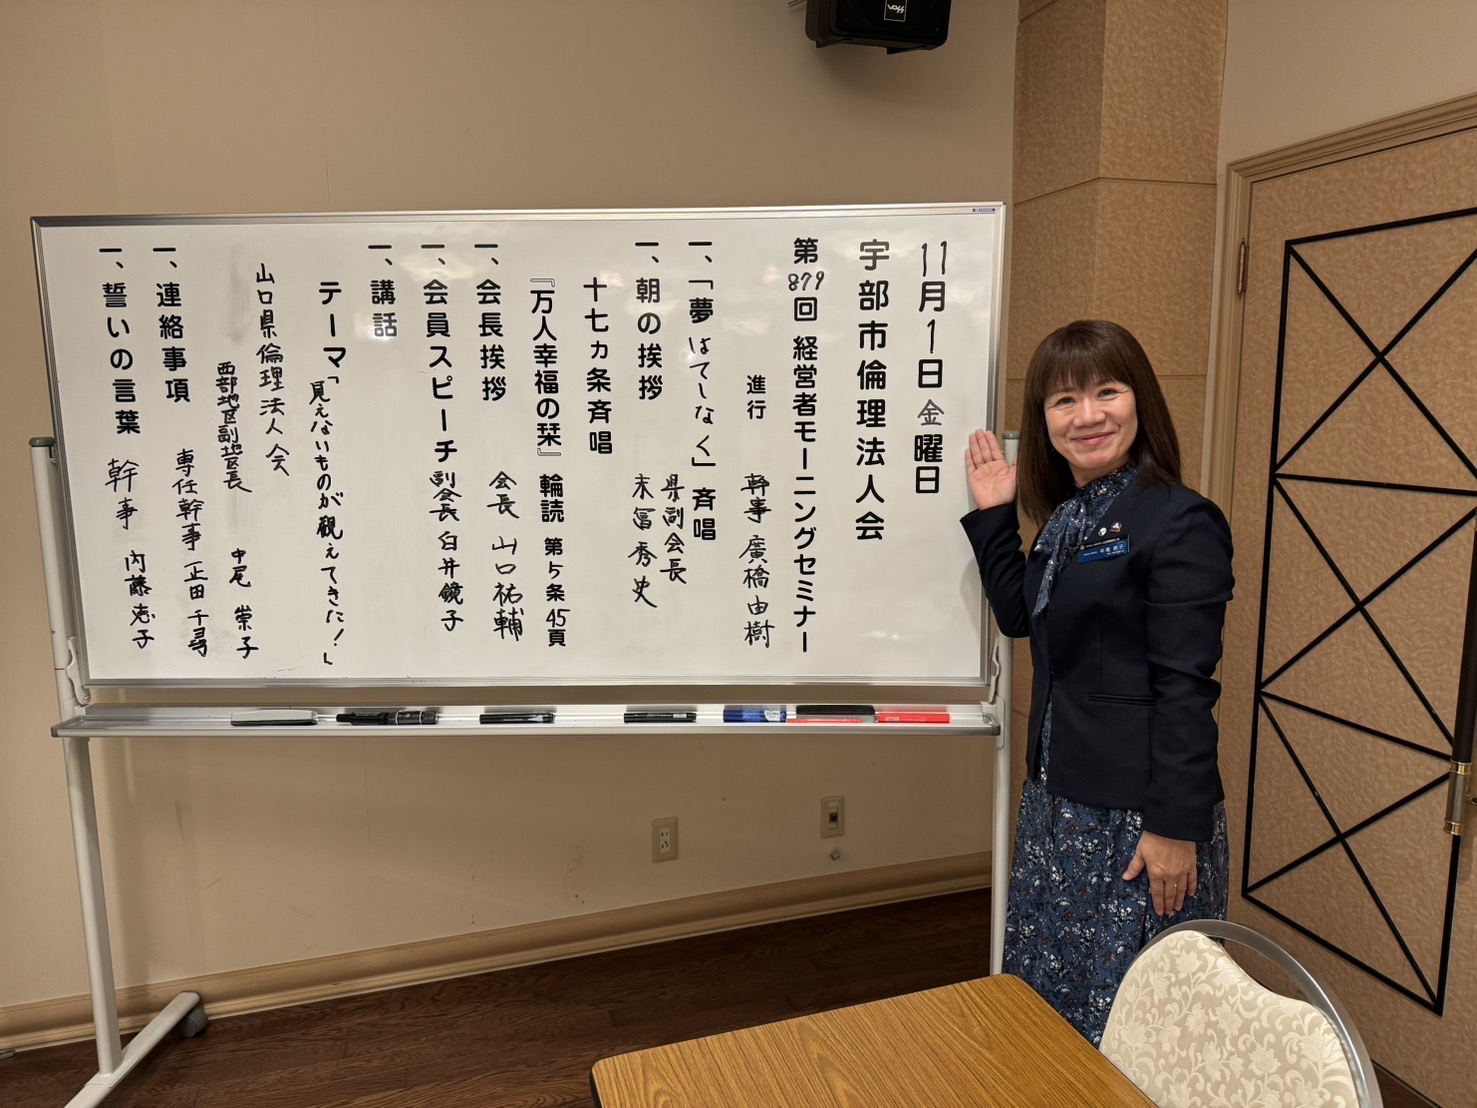 11月1日金曜日
宇部市倫理法人会
第879回 経営者モーニングセミナー
進行 幹事 廣橋由樹
一、「夢はてしなく」斉唱
一、朝の挨拶 県副会長
末冨秀史
十七ヵ条斉唱
『万人幸福の栞』輪読 第5条45頁
一、会長挨拶 会長 山口祐輔
一、会員スピーチ 副会長 臼井鏡子
一、講話
テーマ「見えないものが観えてきた！」
山口県倫理法人会
西部地区副地区長 中尾 崇子
一、連絡事項 専任幹事 正田千尋
一、誓いの言葉 幹事 内藤志子